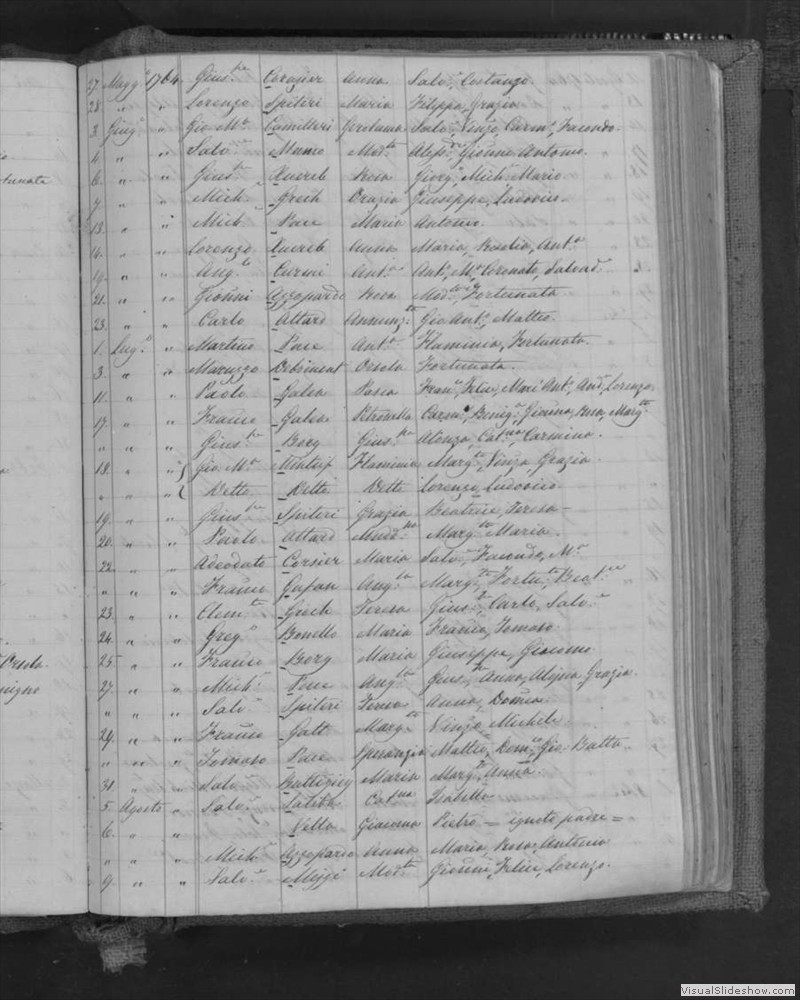 tunata
Orsola
nigno
27. Magg.o 1764. Gius.pe Caragier Anna Salv.r, Costanzo.
28. " " Lorenzo Spiteri Maria Filippa, Grazia
3. Giug.o " Gio M.a Camilleri Gerolama Salv.r, Vinzo, Carm.o, Facondo.
4. " " Salv.r Munro Mod.ta Giouni Antonio.
6. " " Gius.pe Xuereb Rosa Giorg.o Mich.l Mario.
7. " " Mich.l Grech Orazia Giuseppe, Ludovico.
13. " " Mich.l Pace Maria Antonio.
14. " " Lorenzo Xuereb Anna Maria, Rosolia, Ant.a
19. " " Aug.o Curmi Ant.a Ant.o, M.a Coronato, Salvad.r
21. " " Giouni Azzopardi Rosa Fortunata
23. " " Carlo Attard Annunz.ta Gio Ant.o, Matteo.
1. Lug.o " Martino Pace Ant.a Flaminia, Fortunata.
3. " " Muruzzo Orsola Fortunata.
11. " " Paolo Galea Rosea Fran.o, Felice, Mari Ant.a, And.a, Lorenzo.
17. " " Franco Galea Petronella Carm.a, Benig.a, Giouna, Rosa, Marg.ta
" " " Gius.pe Borg Gius.pa Alonza, Cat.na, Carmina.
18. " " Gio. M.a Mintuf Flaminia Marg.ta, Vinza, Grazia
" " " Detto Detto Detta Lorenzo, Ludovico.
19. " " Gius.pe Spiteri Grazia Beatrice, Teresa
20. " " Paolo Attard Madd.na Marg.ta Maria.
22. " " Adeodato Corsier Maria Salv.r, Facondo, M.a
" " " Franco Gafan Ang.la Marg.ta, Fortu.ta, Beat.ce
23. " " Clem.te Grech Teresa Gius.e, Carlo, Salv.r
24. " " Greg.o Bonello Maria Franca, Tomaso
25. " " Franco Borg Maria Giuseppe, Giacomo
27. " " Mich.l Pace Ang.la Gius.e, Anna, Grazia.
" " " Salv.r Spiteri Teresa Anna, Domca
29. " " Franco Gatt Marg.ta Vinzo, Michele
" " " Tomaso Pace Speranzia Matteo, Dom.o, Gio: Batta.
31. " " Salv.r Buttigieg Maria Marg.ta, Anna.
5. Agosto " Salv.r Cat.na Isabella
6. " " Vella Giacoma Pietro = ignoto padre =
" " " Mich.l Azzopardi Anna Maria, Rosa, Antonia
9. " " Salv.r Mizzi Mod.ta Giouni, Felice, Lorenzo.
VisualSlideshow.com